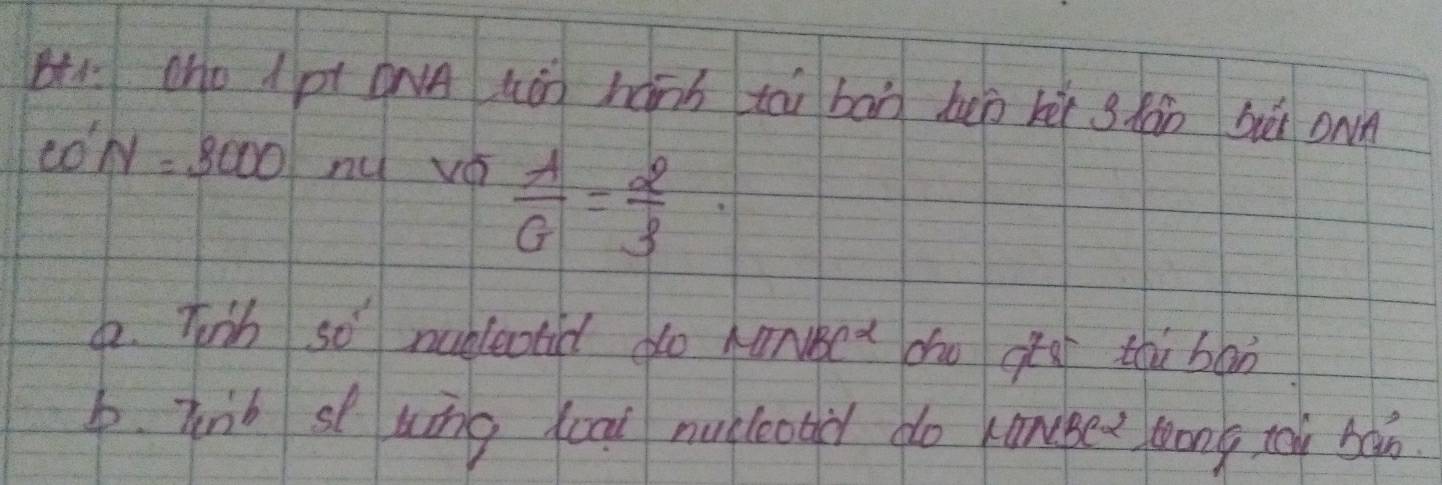 Bt1: Cho 1 pt DNA tiến hành tái bản liên tiếp 3 lần biết DNA
có N = 3000 nu và A/G = 2/3.
a. Tính số nucleotid do MTNBC² cho qtr tái bản.
b. Tính sl từng loại nucleotid do MTNBC² trong tái bản.